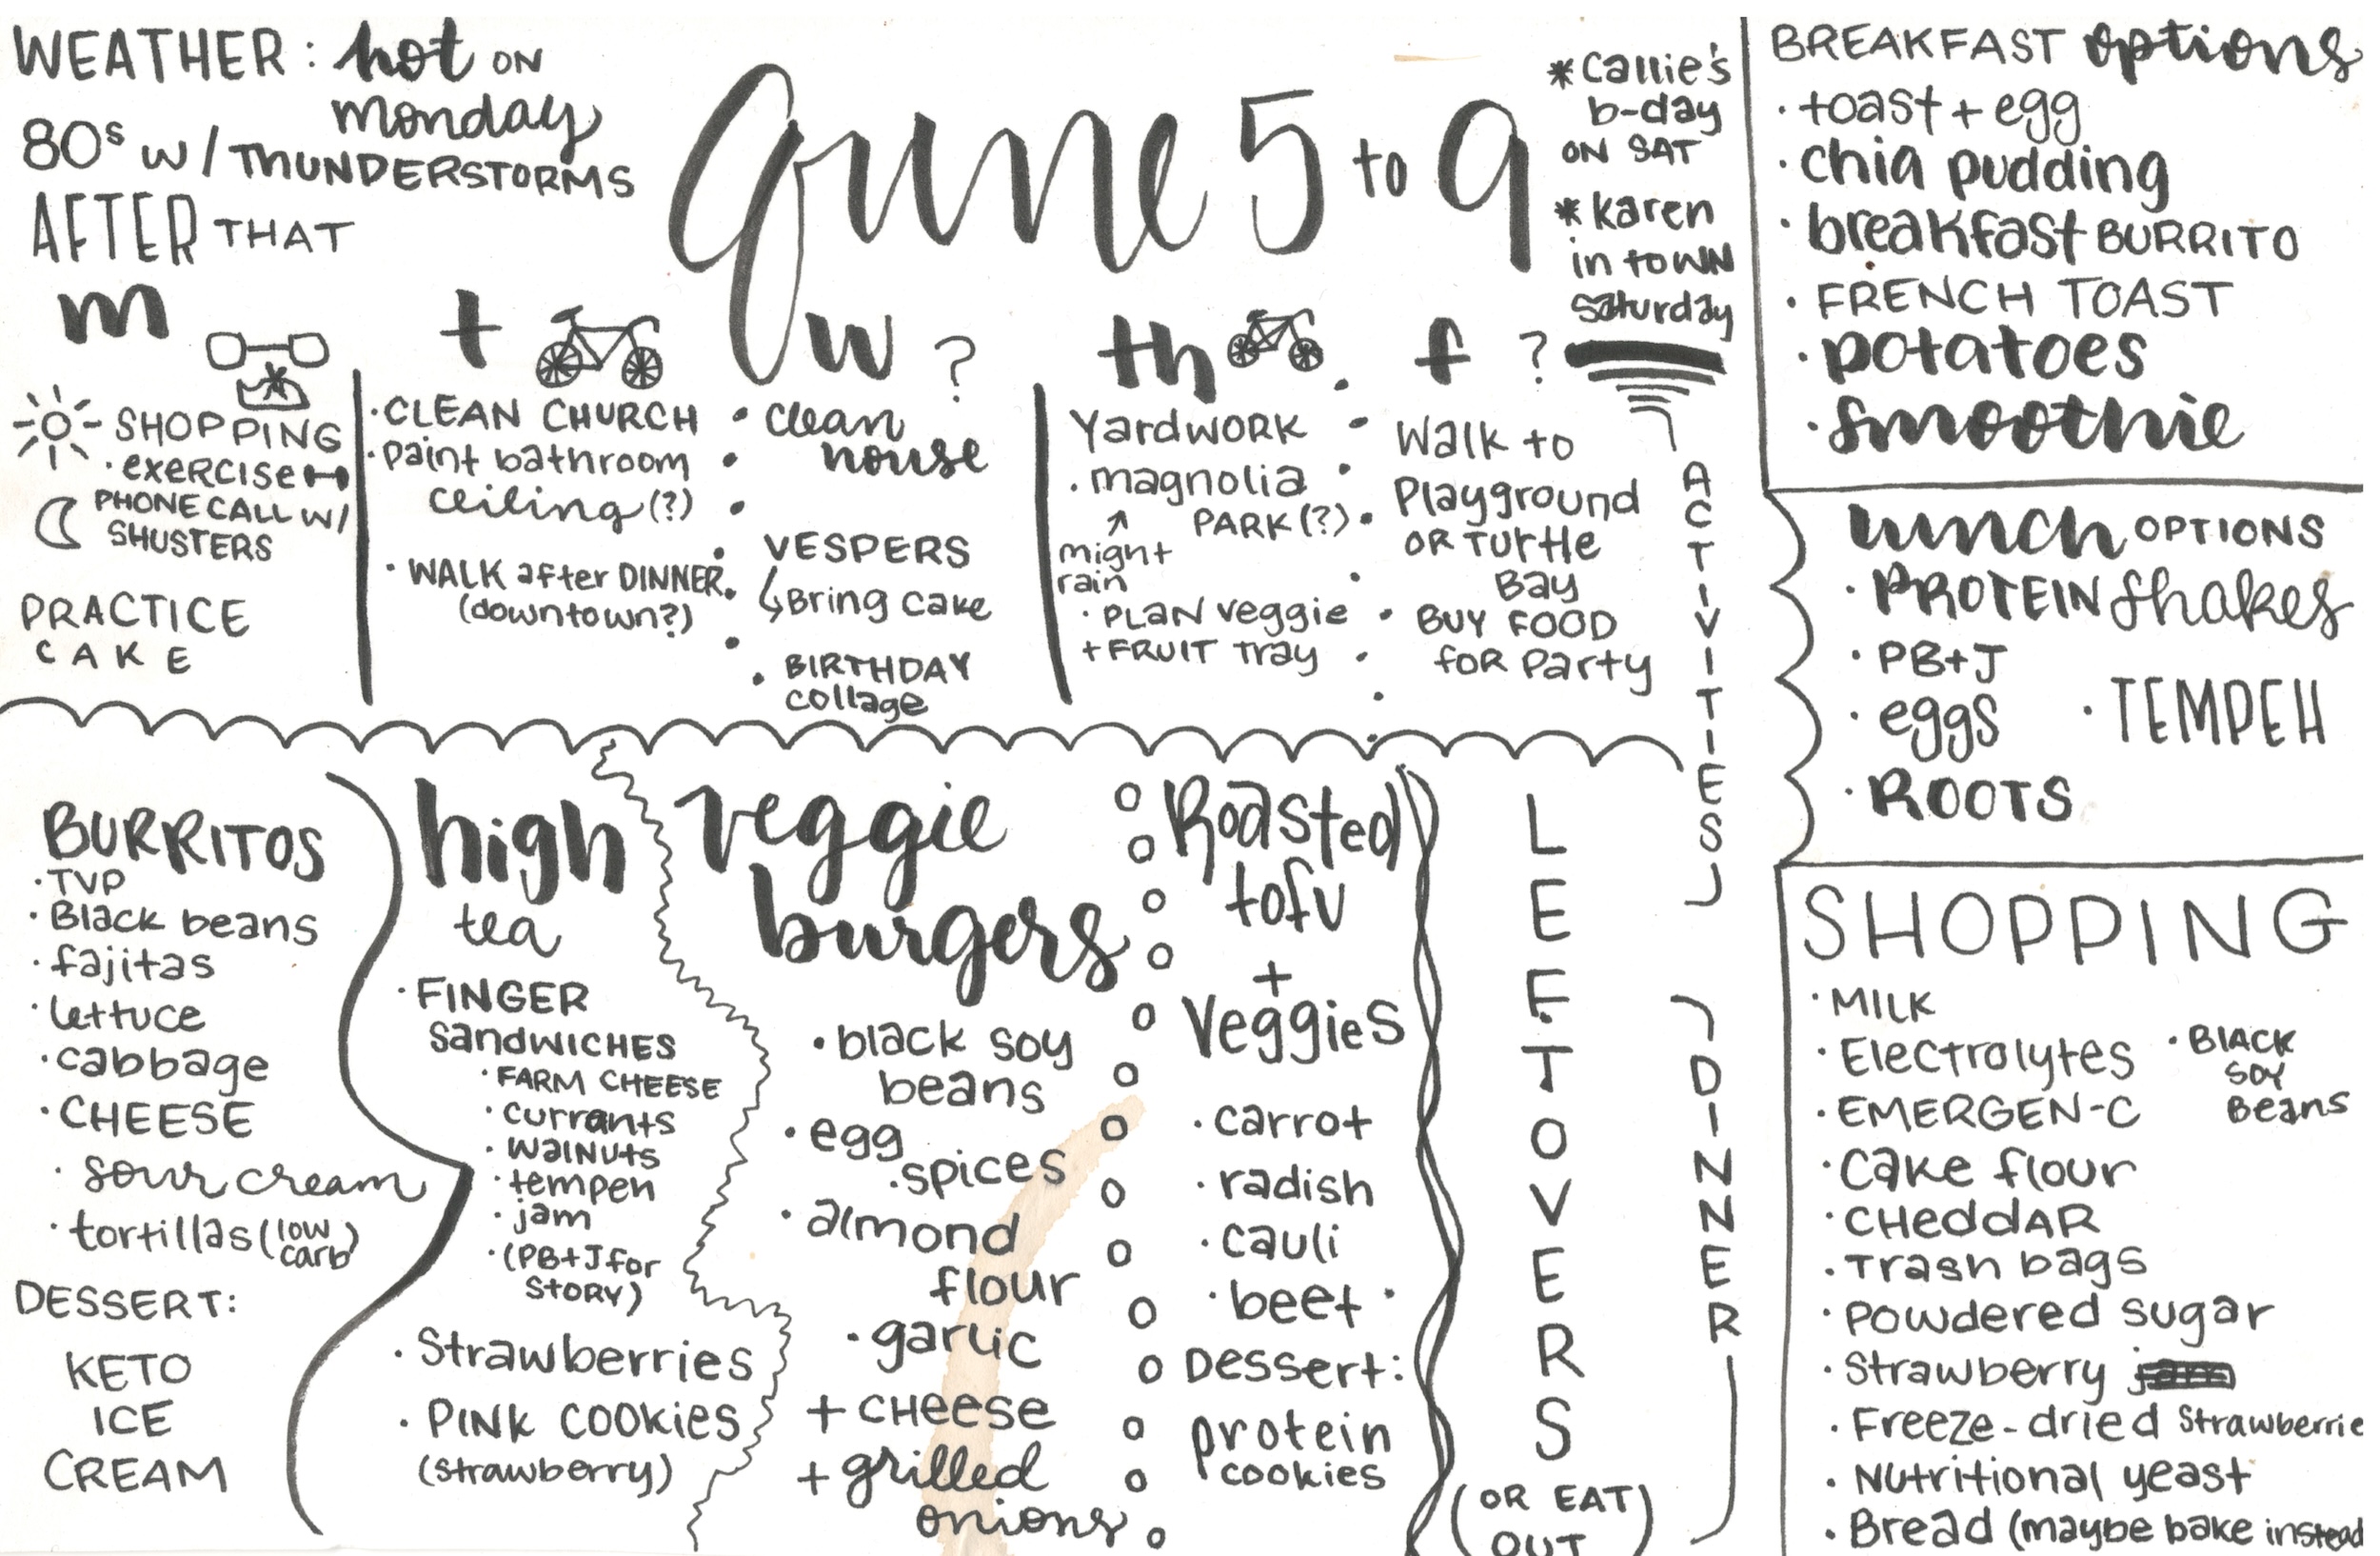 WEATHER: hot ON
monday
80s w/ THUNDERSTORMS
AFTER THAT
June 5 to 9
*Callie's
b-day
ON SAT
*karen
in town
saturday
m
SHOPPING
· exercise
PHONE CALL w/
SHUSTERS
PRACTICE
CAKE
t
· CLEAN CHURCH
· paint bathroom
ceiling (?)
· WALK after DINNER
(downtown?)
w ?
clean
house
VESPERS
↳ Bring cake
· BIRTHDAY
collage
th
Yardwork
· magnolia
PARK (?)
↑
might
rain
· PLAN veggie
+ FRUIT Tray
f ?
Walk to
Playground
OR Turtle
Bay
BUY FOOD
for Party
ACTIVITIES
BURRITOS
· TVP
· Black beans
· fajitas
· lettuce
· cabbage
· CHEESE
· sour cream
· tortillas (low
carb)
DESSERT:
KETO
ICE
CREAM
high
tea
· FINGER
sandwiches
· FARM CHEESE
· currants
· walnuts
· tempeh
· jam
· (PB+J for
STORY)
· Strawberries
· PINK COOKIES
(strawberry)
veggie
burgers
· black soy
beans
· egg
· spices
· almond
flour
· garlic
+ CHEESE
+ grilled
onions
Roasted
tofu
+
Veggies
· carrot
· radish
· cauli
· beet
Dessert:
protein
cookies
LEFTOVERS
(OR EAT)
OUT
DINNER
BREAKFAST options
· toast + egg
· chia pudding
· breakfast BURRITO
· FRENCH TOAST
· potatoes
· smoothie
lunch OPTIONS
· PROTEIN shakes
· PB+J
· eggs
· TEMPEH
· ROOTS
SHOPPING
· MILK
· Electrolytes
· BLACK
SOY
Beans
· EMERGEN-C
· cake flour
· CHEDDAR
· Trash bags
· Powdered sugar
· Strawberry
· Freeze-dried Strawberrie
· Nutritional yeast
· Bread (maybe bake instead